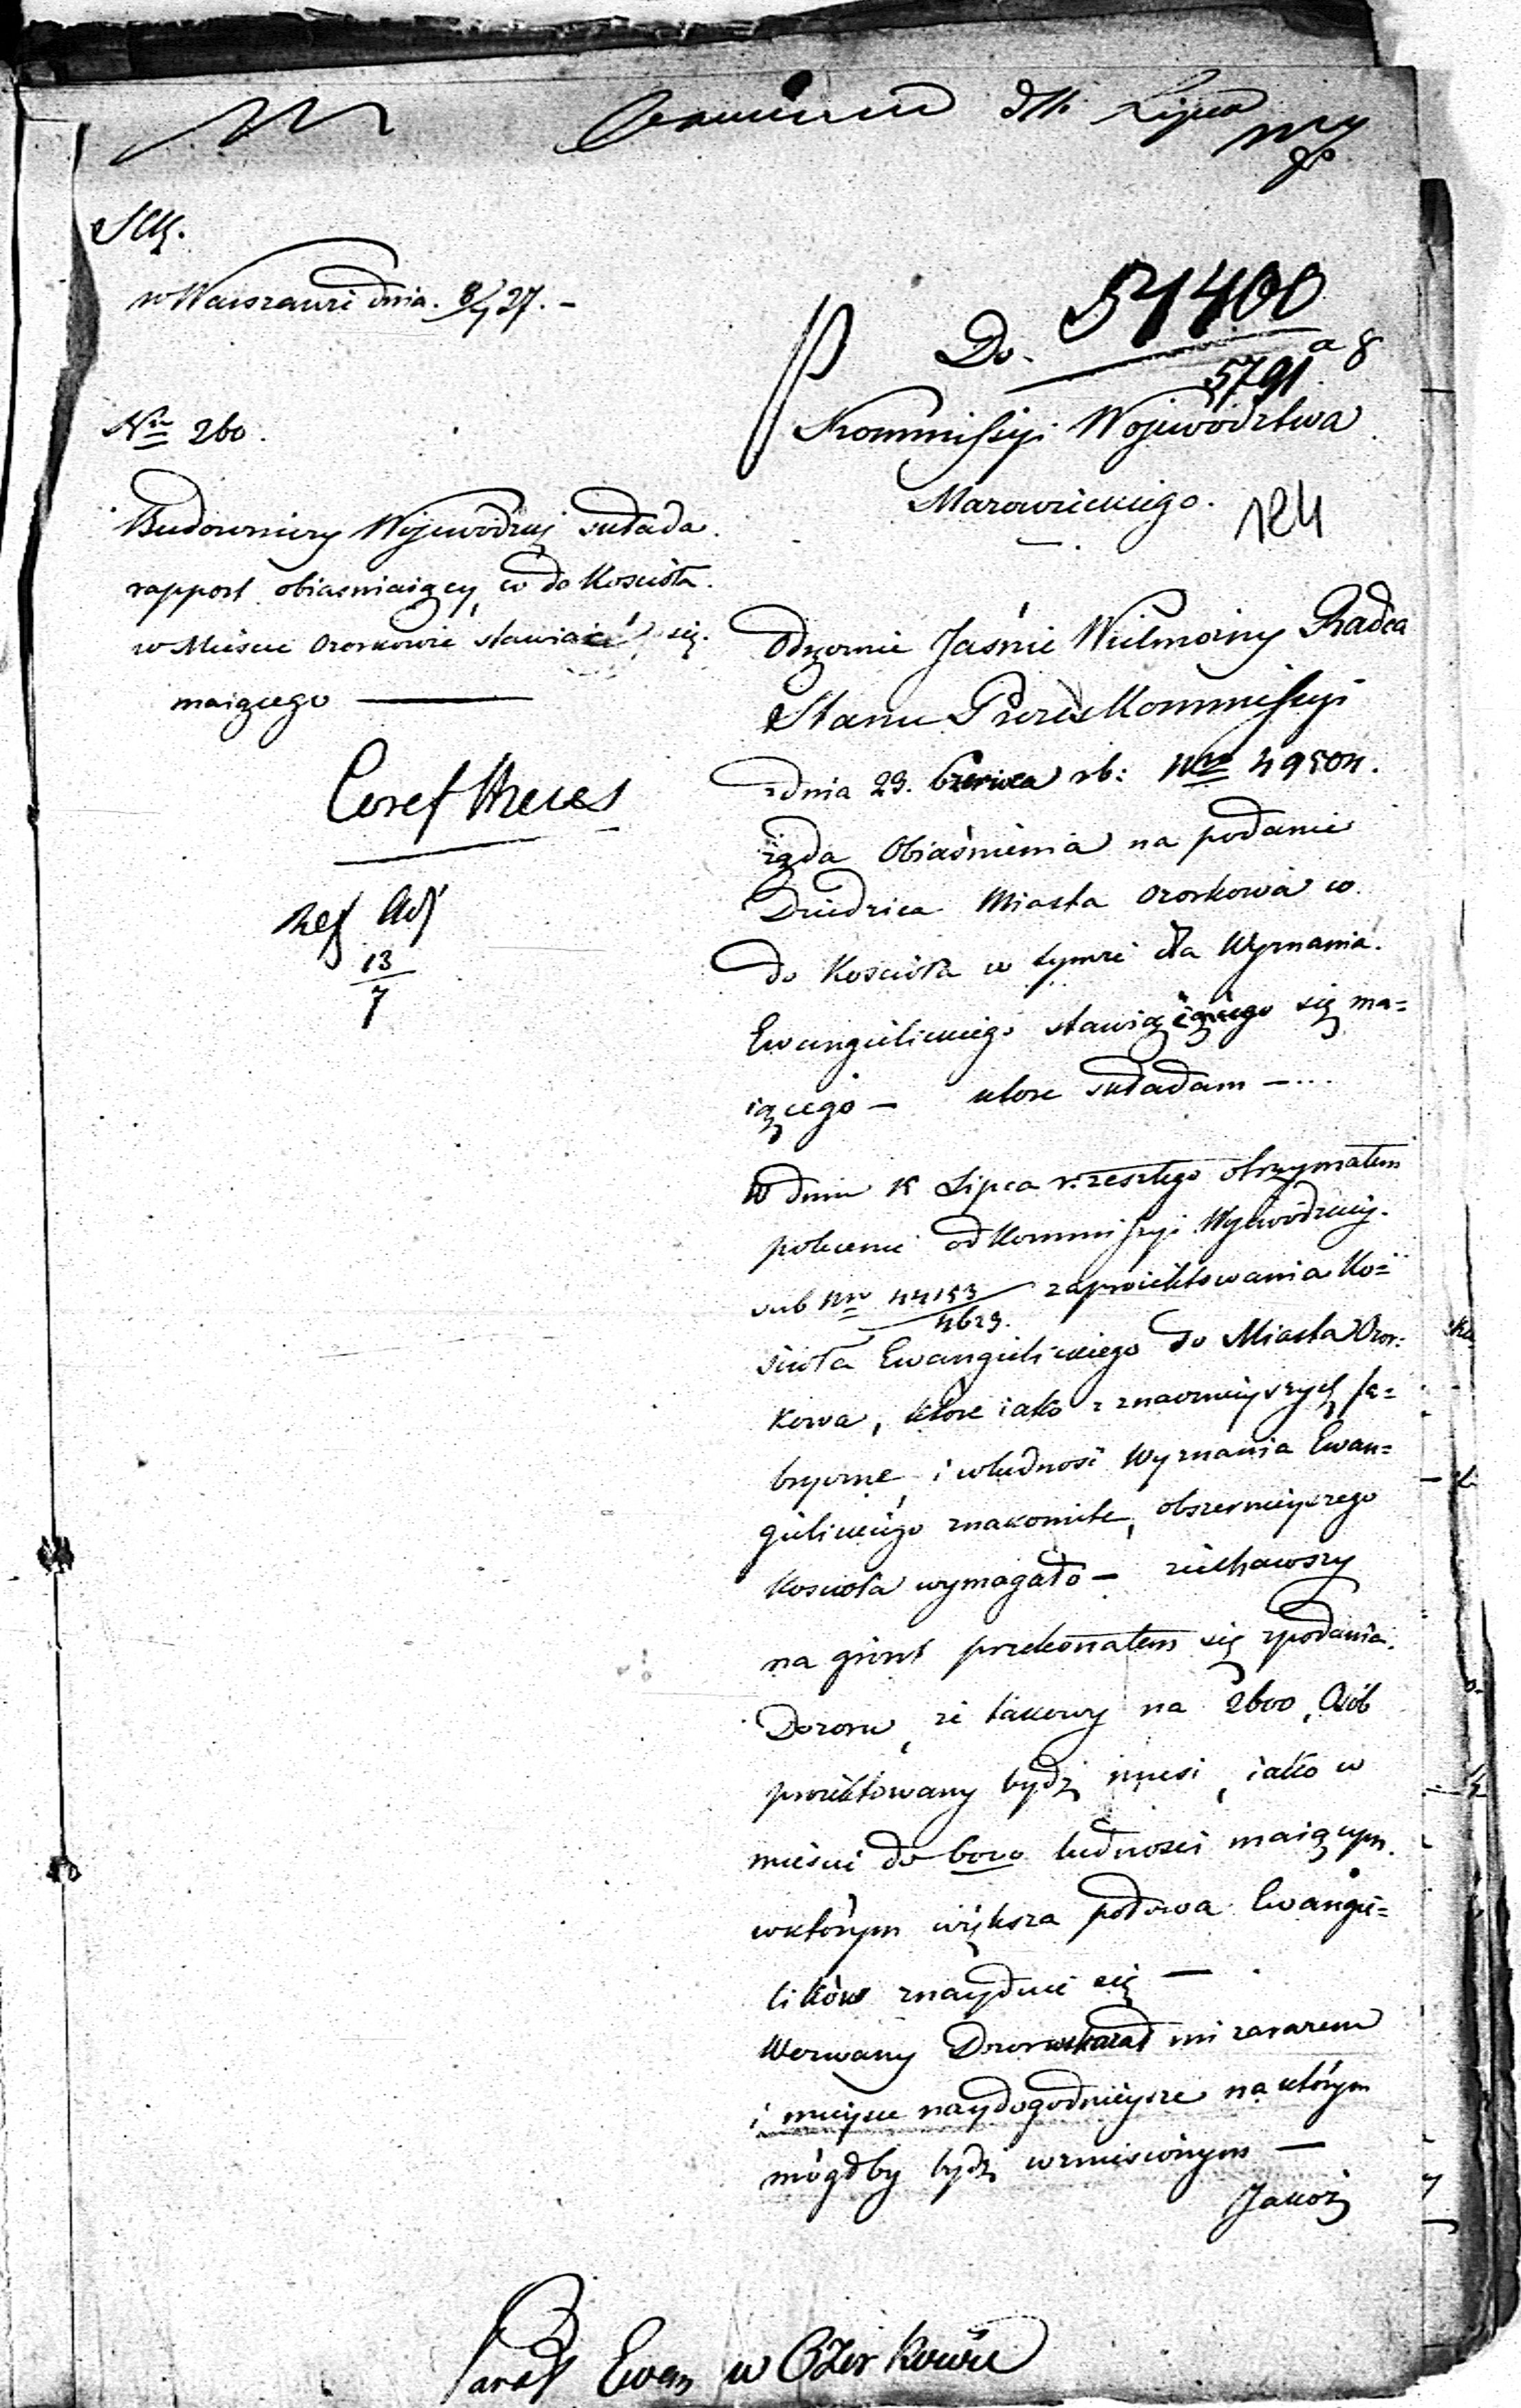 dtt Lipca
SCK.
w Warszawie dnia 8/7 27. –
Do. 51400
5791 a 8
Nro 260.
Kommissyi Województwa
Mazowieckiego.
124
Budowniczy Wojewódzki składa
rapport obiasniaiący co do Kościoła
w Mieście Ozorkowie stawiać się
maiącego —
Ref
13
7
Odezwie Jaśnie Wielmożny Radca
Stanu Prezes Kommissyi
z dnia 23. Czerwca rb: Nro 49504.
żąda Obiaśnienia na podanie
Dziedzica Miasta Ozorkowa co
do Kościoła w tymże dla Wyznania
Ewangielickiego stawiać się ma=
iącego – które składam – ...
W dniu 15 Lipca r. zeszłego otrzymałem
polecenie od Kommissyi Wojewódzkiej
sub Nro 44153/4629. zaproiektowania Ko=
ścioła Ewangielickiego do Miasta Ozor=
kowa, które iako z znacznieyszych fa=
bryczne, i w ludność Wyznania Ewan=
gielickiego znakomite, obszernieyszego
Kościoła wymagało – ziechawszy
na grunt przekonałem się z podania
Dozoru, że takowy na 2600 Osób
proiektowany bydź musi, iako w
mieście do 6000 ludności maiącym
w którym większa połowa Ewangie=
lików znayduie się —
Wezwany Dozor wskazał mi zarazem
i mieysce naydogodnieysze na którym
mógłby bydź wzniesionym —
Jakoż
Paraf Ewan w Ozorkowie